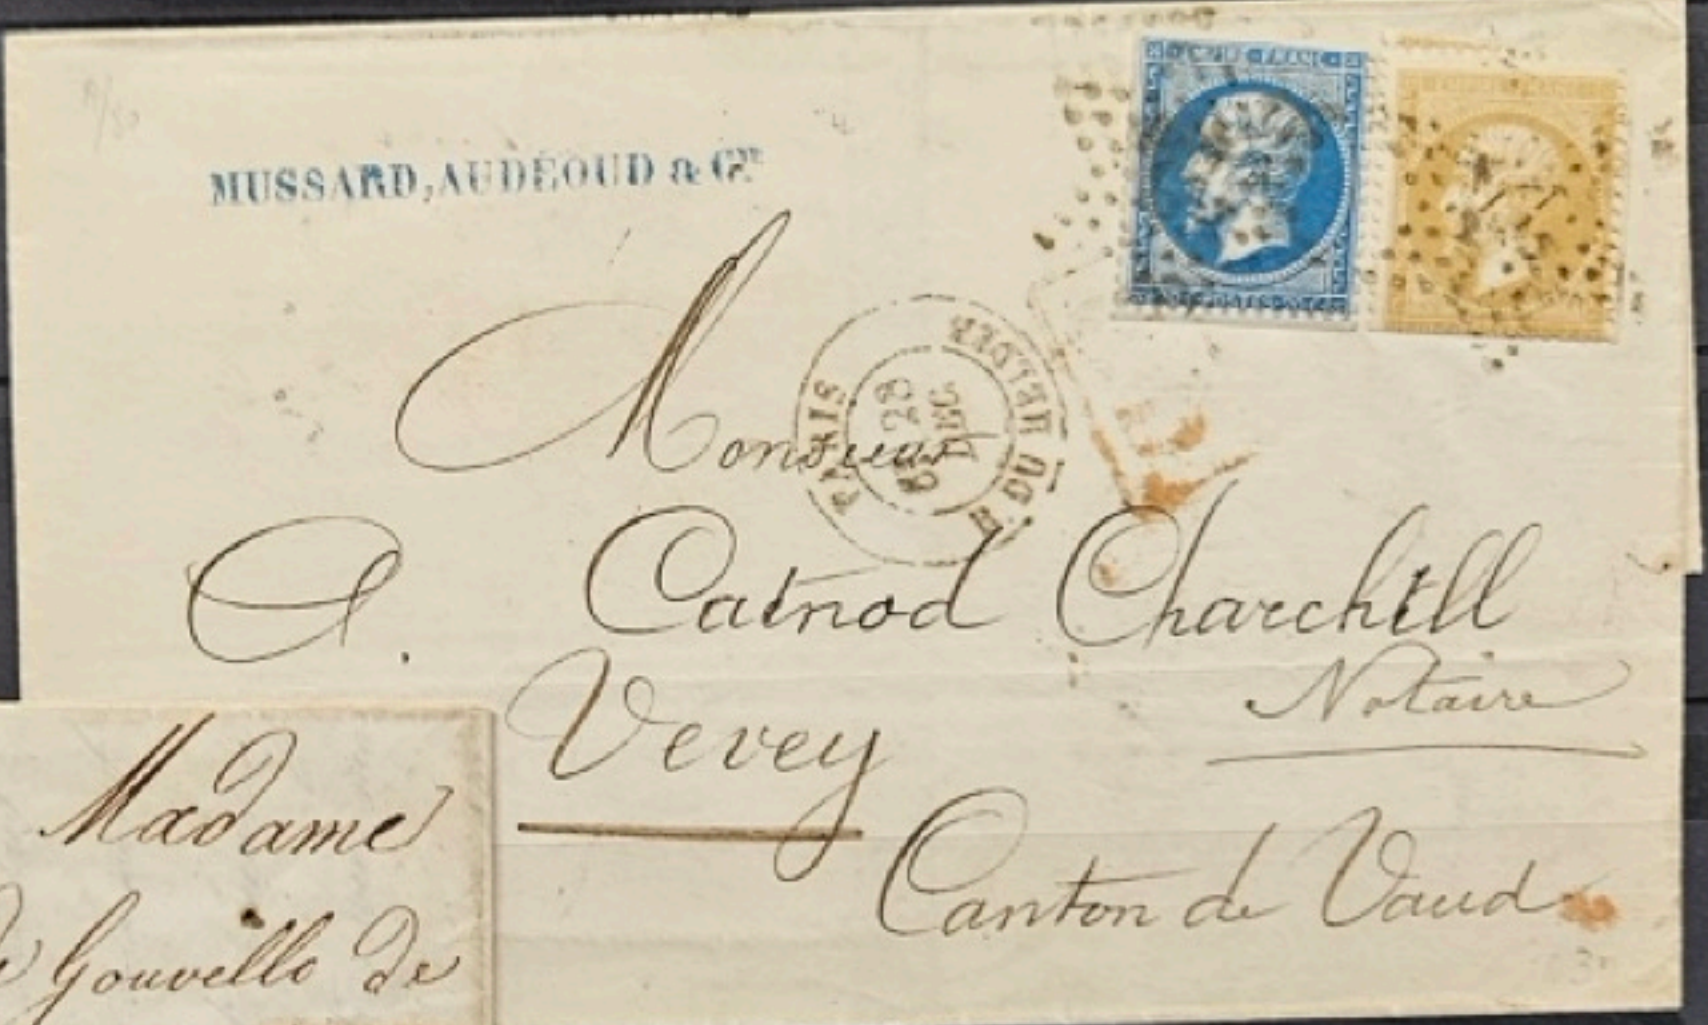 MUSSARD, AUDÉOUD & Cie
PARIS
28
DEC
Monsieur
A. Catnod Charchill
Notaire
Vevey
Canton de Vaud
Madame
Gouvello de